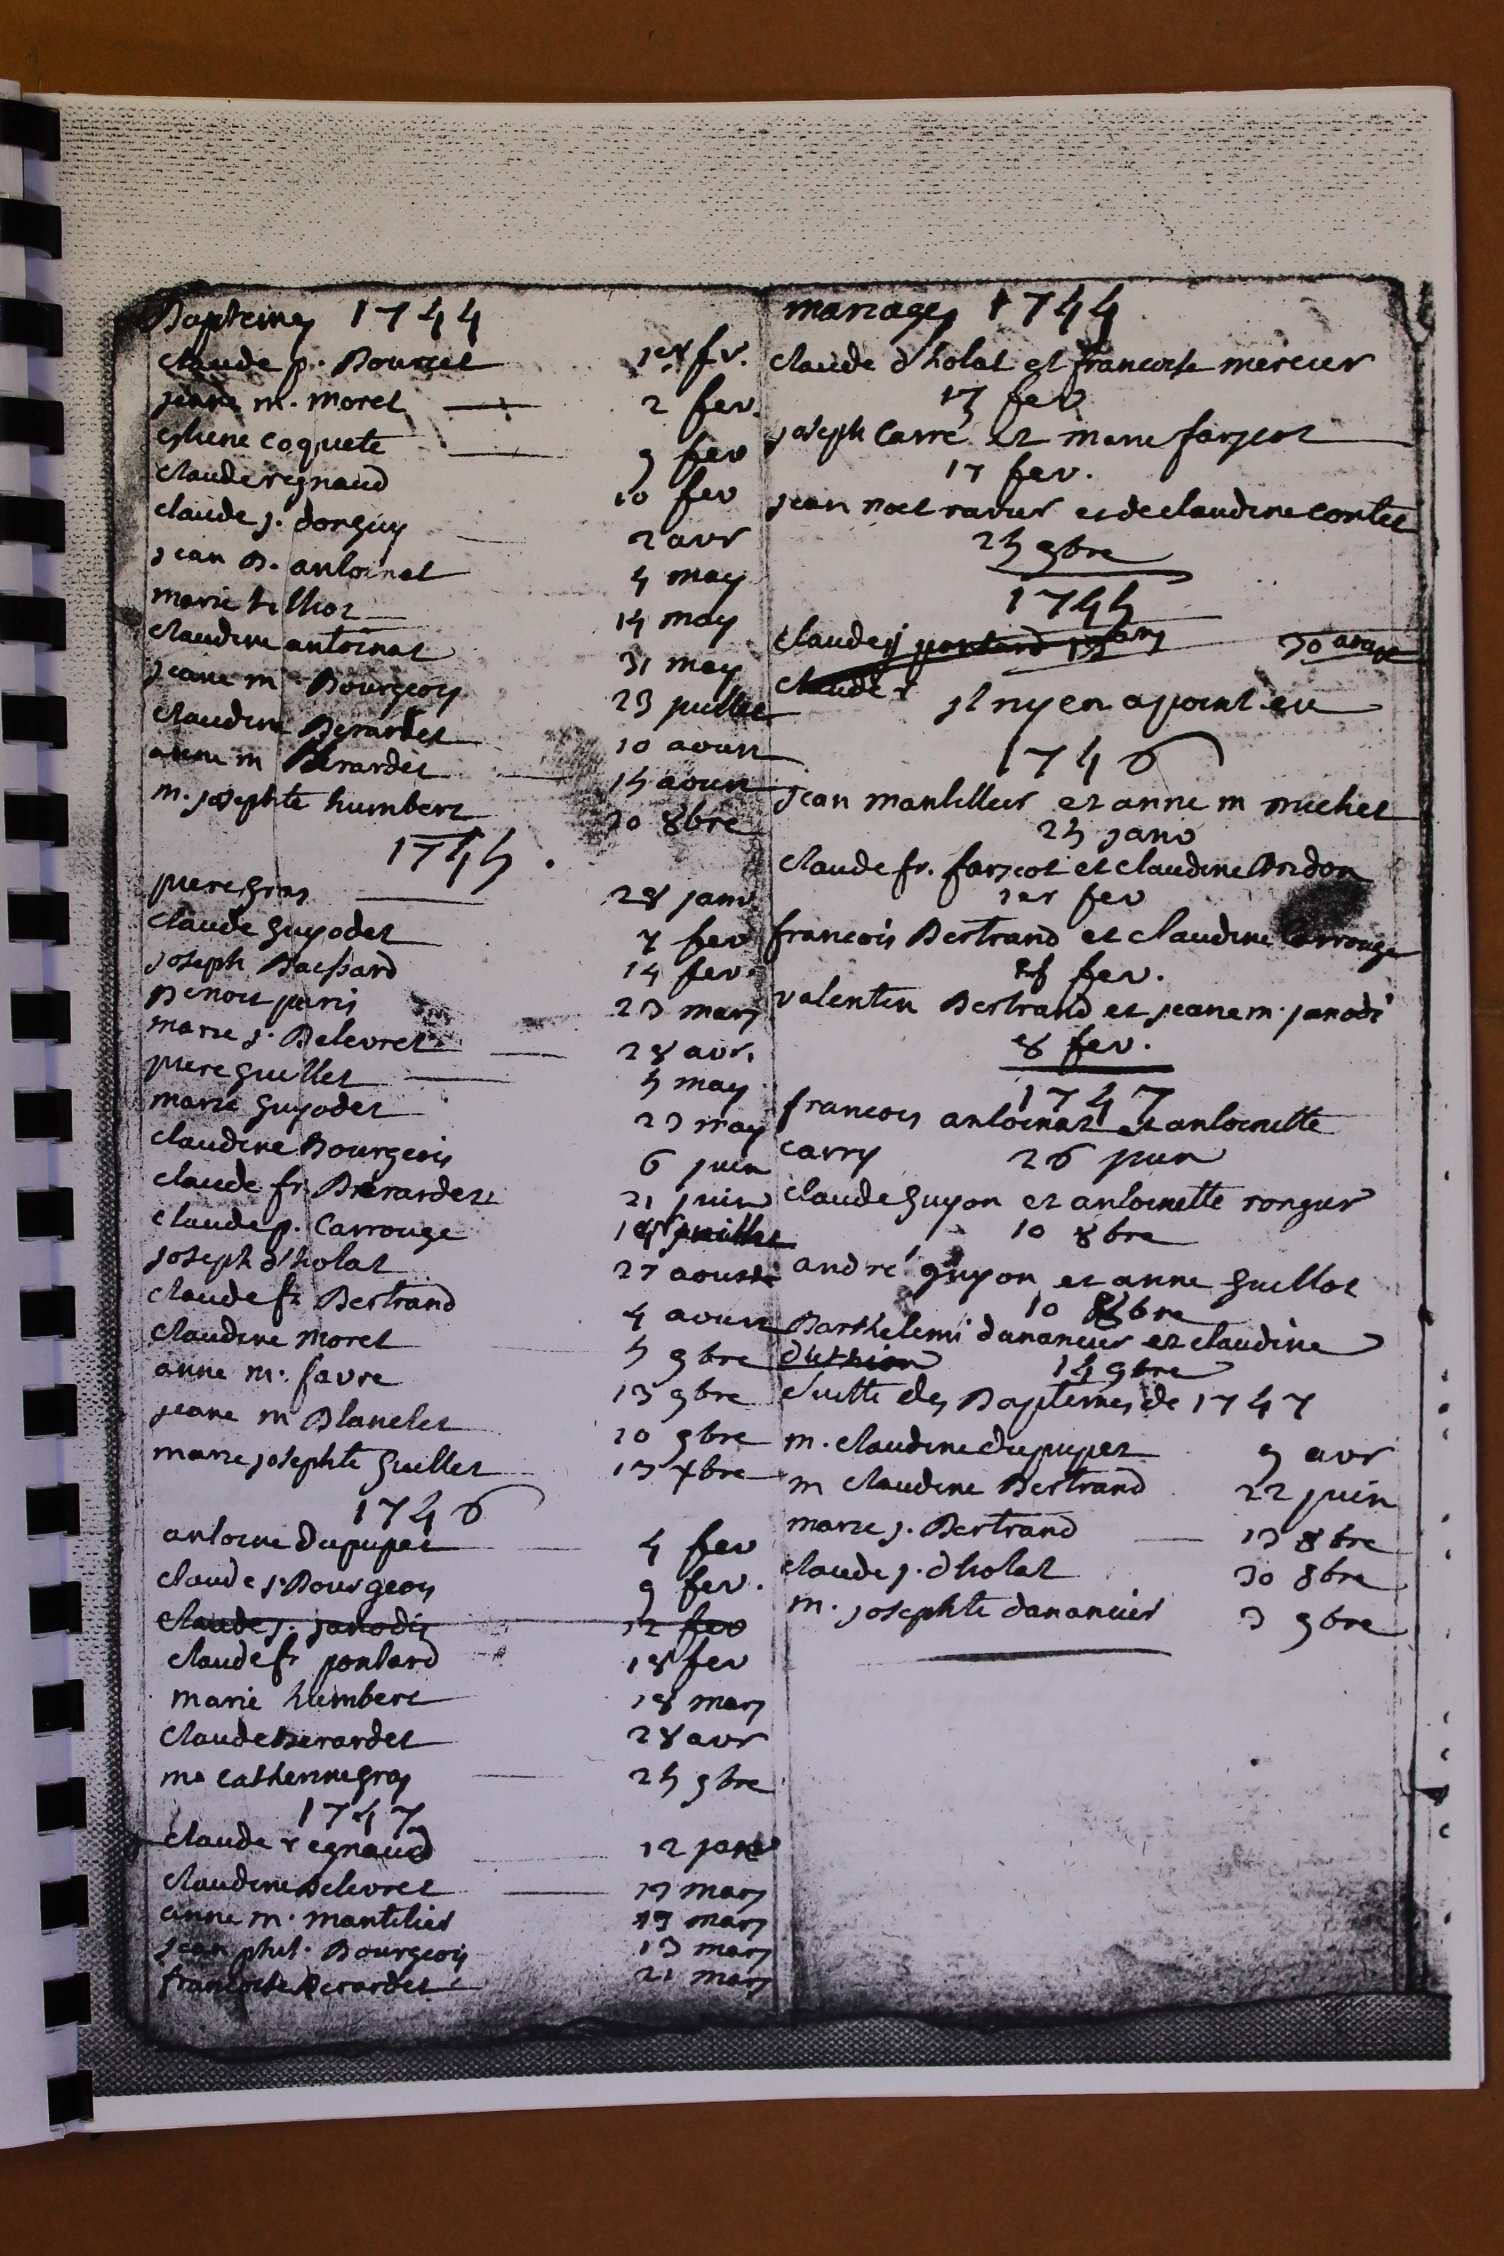 Baptemes 1744
claude p. Bourcet 1er fr.
jeane m. moret 2 fev.
etiene coquete 9 fev
claude regnaud 10 fev
claude j. dorguy 2 avr
jean B. antoinat 4 may
marie 14 may
claudine antoinat 31 may
jeane m. Bourgeois 23 juillet
claudine Berardet 10 aoust
anne m Berardet 15 aoust
m. josephte humbert 30 8bre
1745.
piere gras 28 janv.
claude guyodet 7 fev
joseph Baissard 14 fev.
Benoit paris 23 mars
marie j. Belevret 28 avr.
piere guillet 5 may
marie guyodet 23 may
claudine Bourgeois 6 juin
claude fr. Berardet 21 juin
claude p. Carrouge juillet
joseph d'holat 27 aoust
claude fr Bertrand 4 aoust
claudine moret 5 9bre
anne m. favre 13 9bre
jeane m Blanclet 20 9bre
marie josephte guillet 13 xbre
1746
antoine Dupupet 4 fev
claude j. Bourgeois 9 fev.
claude j. janodi 12 fev
claude fr pontard 18 fev
marie humbert 18 mars
claude Berardet 28 avr
me catherine gras 25 9bre
1747
claude regnaud 12 janv
claudine Belevret 13 mars
anne m. mantilier 13 mars
jean phil. Bourgeois 13 mars
francoise Berardet 21 mars
mariages 1744
claude d'holat et francoise mercier
17 fev
joseph Carré et marie farjeot
17 fev.
jean noel ravier et de claudine contet
25 9bre
1745
claude j pontard mars 30
claude
il ny en a point eu
1746
jean mantillier et anne m michet
25 janv
claude fr. farjeot et claudine Bridon
1er fev
francois Bertrand et claudine Carrouge
8 fev.
valentin Bertrand et jeane m. janodi
8 fev.
1747
francois antoinat et antoinette
carry 26 juin
claude guyon et antoinette rongier
10 8bre
andré guyon et anne guillot
10 8bre
Barthelemi danancier et claudine
14 9bre
Suitte des Baptemes de 1747
m. claudine dupupet 9 avr
m claudine Bertrand 22 juin
marie j. Bertrand 13 8bre
claude j. d'holat 30 8bre
m. josephte dananciér 3 9bre